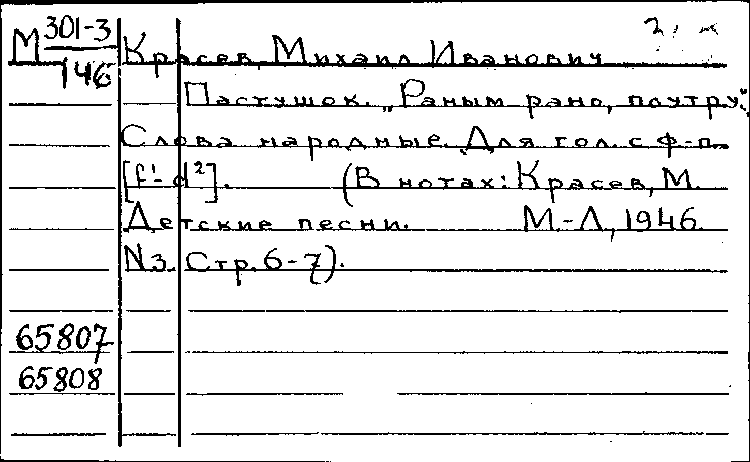 М 301-3/146 Красев, Михаил Иванович
Пастушок. „Раным рано, поутру".
Слова народные. Для гол. с ф-п.
[f¹-d²]. (В нотах: Красев, М.
Детские песни. М.-Л., 1946.
N3. Стр. 6-7).
65807
65808